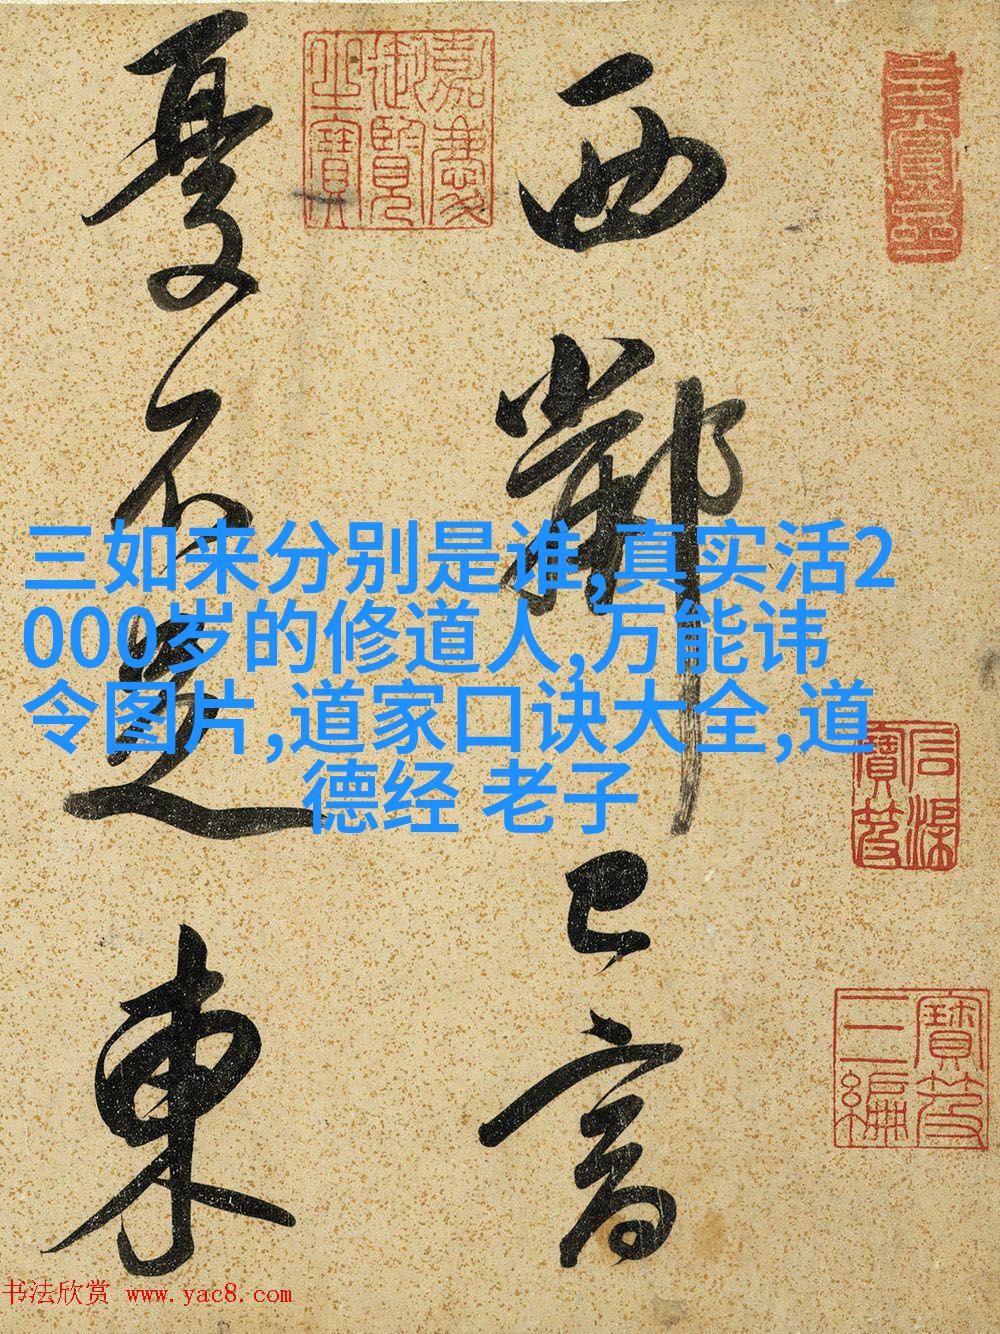 西鄰已富
憂不足東
嘉慶
御覽
之寶
石渠
寶笈
寶笈
三編
三如来分别是谁,真实活2
000岁的修道人,万能讳
令图片,道家口诀大全,道
德经 老子
书法欣赏 www.yac8.com